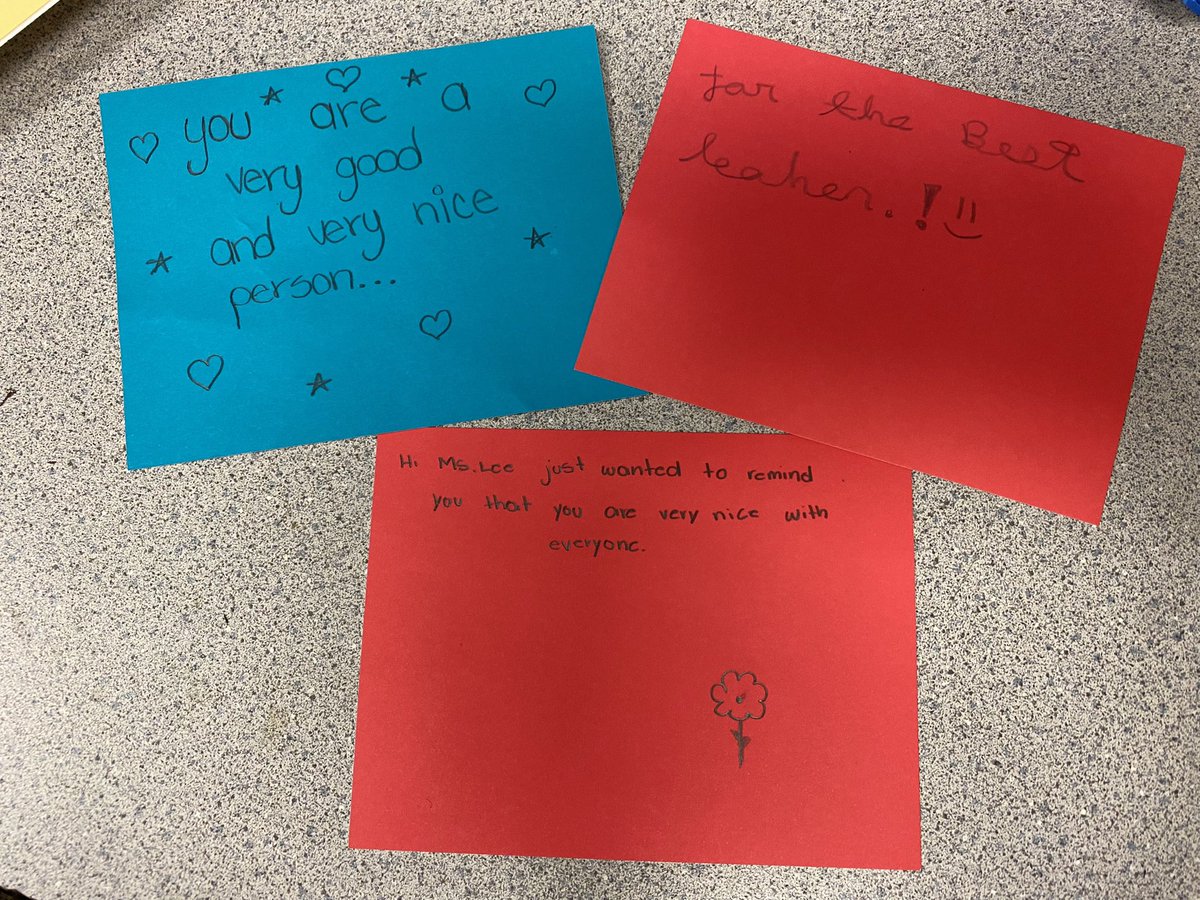 you are a
very good
and very nice
person...
for the Best
teaher.!
Hi Ms. Lee just wanted to remind
you that you are very nice with
everyone.